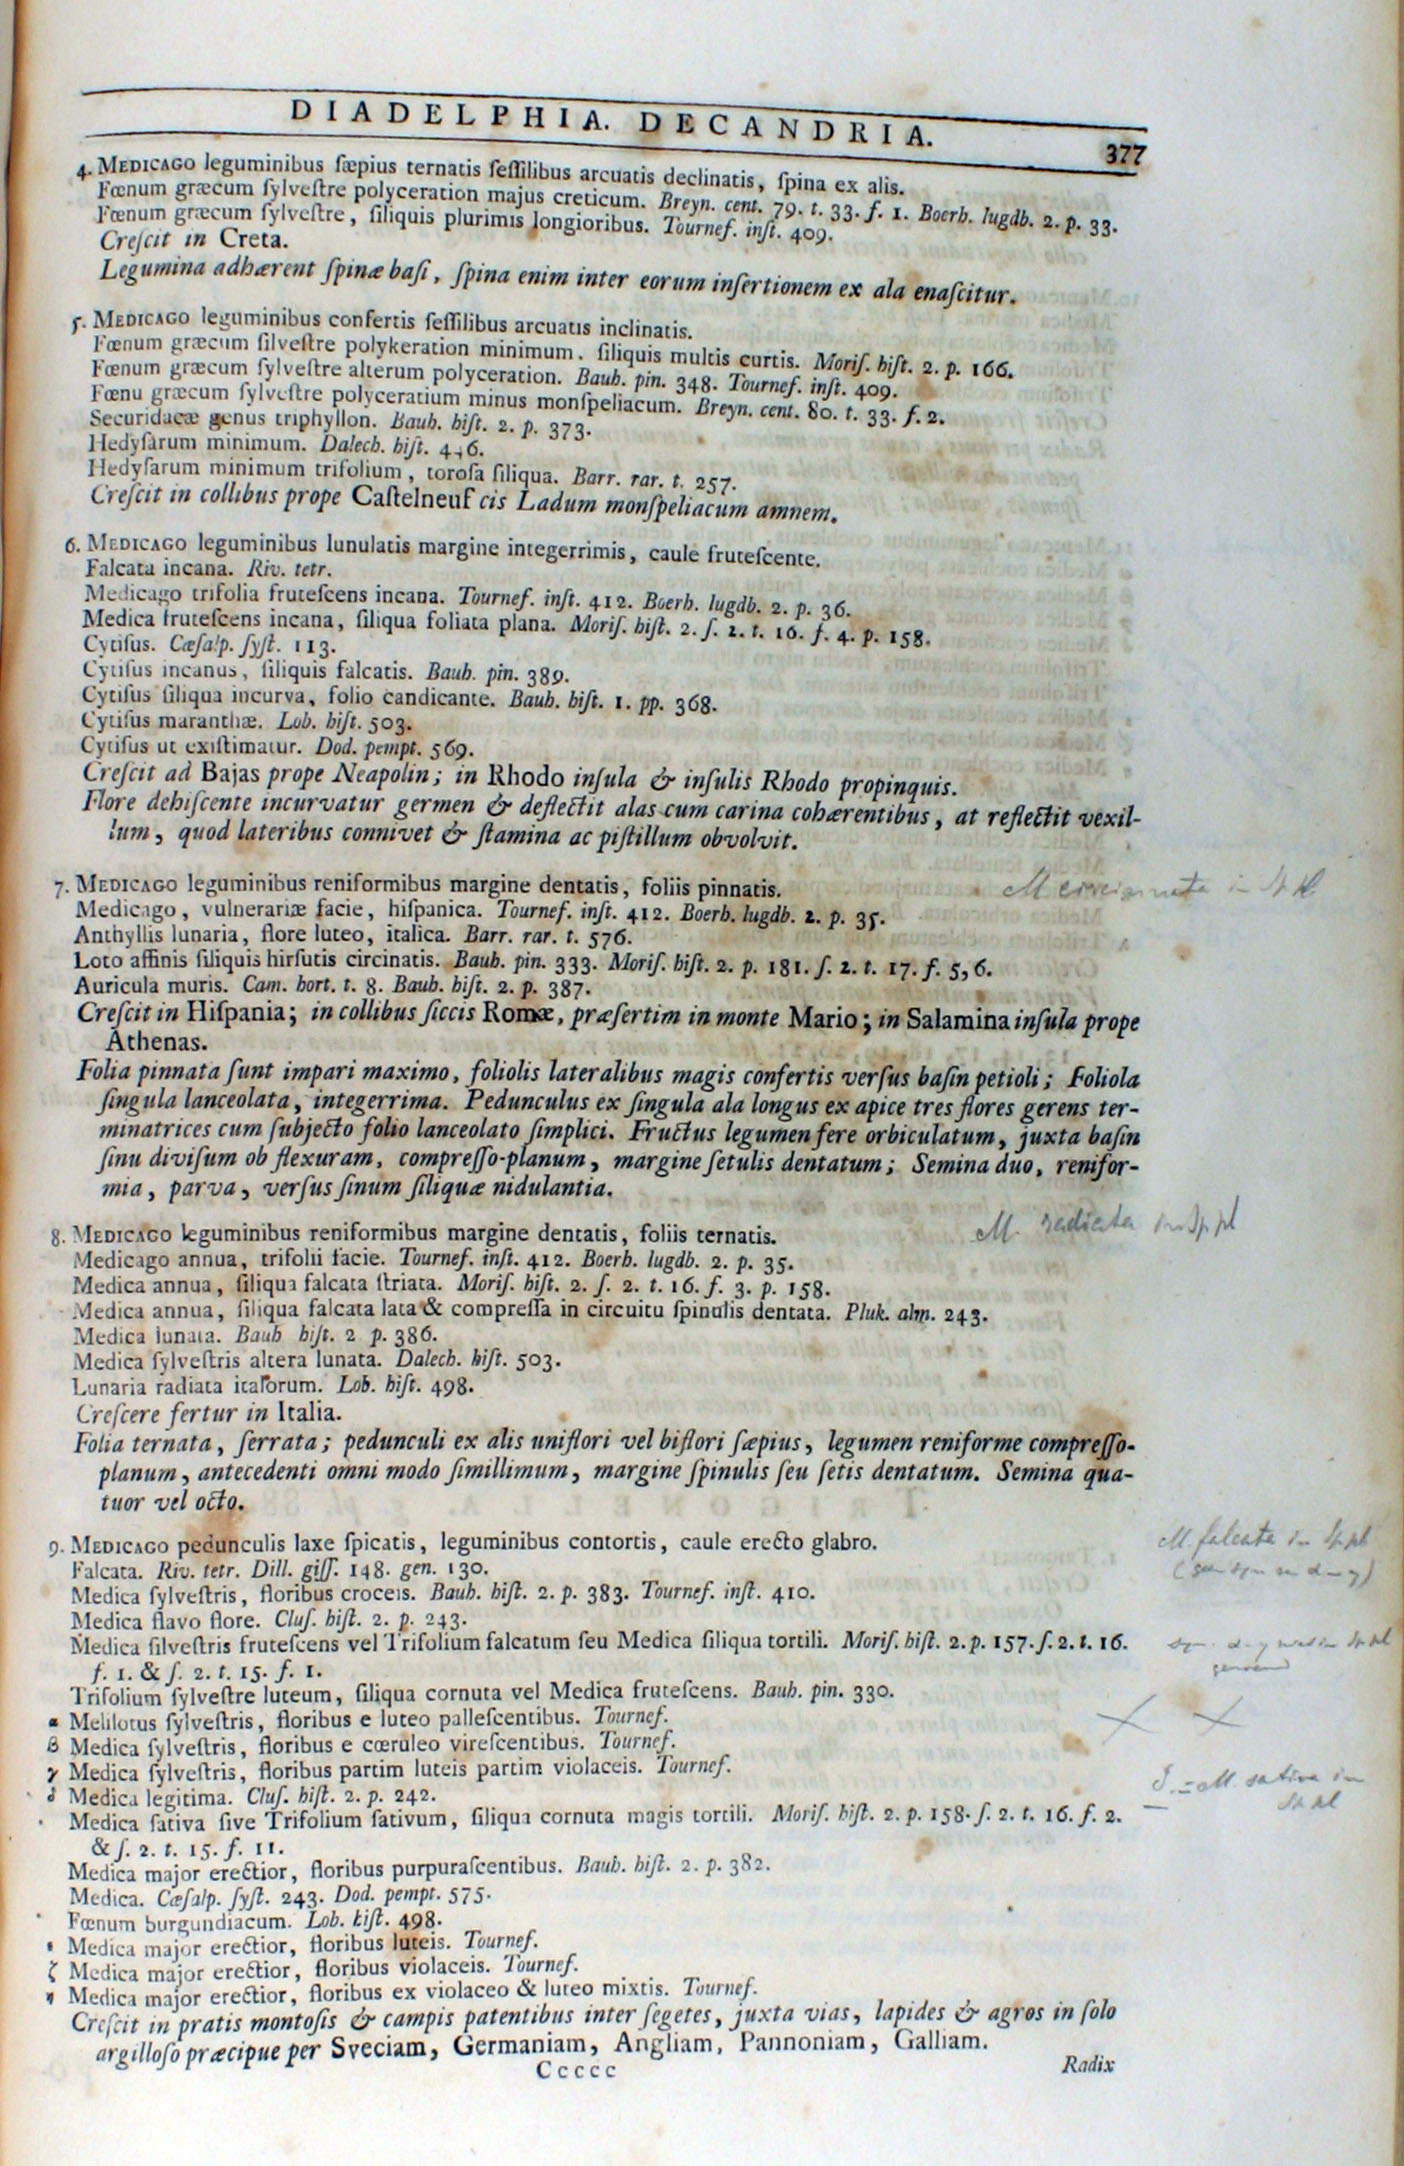 DIADELPHIA. DECANDRIA.
377
4. MEDICAGO leguminibus ſæpius ternatis ſeſſilibus arcuatis declinatis, ſpina ex alis.
Fœnum græcum ſylveſtre polyceration majus creticum. Breyn. cent. 79. t. 33. f. 1. Boerb. lugdb. 2. p. 33.
Fœnum græcum ſylveſtre, ſiliquis plurimis longioribus. Tournef. inſt. 409.
Creſcit in Creta.
Legumina adhærent ſpinæ baſi, ſpina enim inter eorum inſertionem ex ala enaſcitur.
5. MEDICAGO leguminibus confertis ſeſſilibus arcuatis inclinatis.
Fœnum græcum ſilveſtre polykeration minimum. ſiliquis multis curtis. Moriſ. hiſt. 2. p. 166.
Fœnum græcum ſylveſtre alterum polyceration. Bauh. pin. 348. Tournef. inſt. 409.
Fœnu græcum ſylveſtre polyceratium minus monſpeliacum. Breyn. cent. 80. t. 33. f. 2.
Securidacæ genus triphyllon. Bauh. hiſt. 2. p. 373.
Hedyſarum minimum. Dalech. hiſt. 446.
Hedyſarum minimum trifolium, toroſa ſiliqua. Barr. rar. t. 257.
Creſcit in collibus prope Caſtelneuf cis Ladum monſpeliacum amnem.
6. MEDICAGO leguminibus lunulatis margine integerrimis, caule fruteſcente.
Falcata incana. Riv. tetr.
Medicago trifolia fruteſcens incana. Tournef. inſt. 412. Boerh. lugdb. 2. p. 36.
Medica fruteſcens incana, ſiliqua foliata plana. Moriſ. hiſt. 2. ſ. 2. t. 16. f. 4. p. 158.
Cytiſus. Cæſalp. ſyſt. 113.
Cytiſus incanus, ſiliquis falcatis. Bauh. pin. 389.
Cytiſus ſiliqua incurva, folio candicante. Bauh. hiſt. 1. pp. 368.
Cytiſus maranthæ. Lob. hiſt. 503.
Cytiſus ut exiſtimatur. Dod. pempt. 569.
Creſcit ad Bajas prope Neapolin; in Rhodo inſula & inſulis Rhodo propinquis.
Flore dehiſcente incurvatur germen & deflectit alas cum carina cohærentibus, at reflectit vexil-
lum, quod lateribus connivet & ſtamina ac piſtillum obvolvit.
7. MEDICAGO leguminibus reniformibus margine dentatis, foliis pinnatis.
M circinnata in Sp pl
Medicago, vulnerariæ facie, hiſpanica. Tournef. inſt. 412. Boerh. lugdb. 2. p. 35.
Anthyllis lunaria, flore luteo, italica. Barr. rar. t. 576.
Loto affinis ſiliquis hirſutis circinatis. Bauh. pin. 333. Moriſ. hiſt. 2. p. 181. ſ. 2. t. 17. f. 5, 6.
Auricula muris. Cam. hort. t. 8. Bauh. hiſt. 2. p. 387.
Creſcit in Hiſpania; in collibus ſiccis Romæ, præſertim in monte Mario; in Salamina inſula prope
Athenas.
Folia pinnata ſunt impari maximo, foliolis lateralibus magis confertis verſus baſin petioli; Foliola
ſingula lanceolata, integerrima. Pedunculus ex ſingula ala longus ex apice tres flores gerens ter-
minatrices cum ſubjecto folio lanceolato ſimplici. Fructus legumen fere orbiculatum, juxta baſin
ſinu diviſum ob flexuram, compreſſo-planum, margine ſetulis dentatum; Semina duo, renifor-
mia, parva, verſus ſinum ſiliquæ nidulantia.
M. radiata in Sp pl
8. MEDICAGO leguminibus reniformibus margine dentatis, foliis ternatis.
Medicago annua, trifolii facie. Tournef. inſt. 412. Boerh. lugdb. 2. p. 35.
Medica annua, ſiliqua falcata ſtriata. Moriſ. hiſt. 2. ſ. 2. t. 16. f. 3. p. 158.
Medica annua, ſiliqua falcata lata & compreſſa in circuitu ſpinulis dentata. Pluk. alm. 243.
Medica lunata. Bauh hiſt. 2 p. 386.
Medica ſylveſtris altera lunata. Dalech. hiſt. 503.
Lunaria radiata italorum. Lob. hiſt. 498.
Creſcere fertur in Italia.
Folia ternata, ſerrata; pedunculi ex alis uniflori vel biflori ſæpius, legumen reniforme compreſſo-
planum, antecedenti omni modo ſimillimum, margine ſpinulis ſeu ſetis dentatum. Semina qua-
tuor vel octo.
9. MEDICAGO pedunculis laxe ſpicatis, leguminibus contortis, caule erecto glabro.
M. falcata in Sp pl
Falcata. Riv. tetr. Dill. giſſ. 148. gen. 130.
Medica ſylveſtris, floribus croceis. Bauh. hiſt. 2. p. 383. Tournef. inſt. 410.
Medica flavo flore. Cluſ. hiſt. 2. p. 243.
Medica ſilveſtris fruteſcens vel Trifolium falcatum ſeu Medica ſiliqua tortili. Moriſ. hiſt. 2. p. 157. ſ. 2. t. 16.
f. 1. & ſ. 2. t. 15. f. 1.
Trifolium ſylveſtre luteum, ſiliqua cornuta vel Medica fruteſcens. Bauh. pin. 330.
α Melilotus ſylveſtris, floribus e luteo palleſcentibus. Tournef.
β Medica ſylveſtris, floribus e cœruleo vireſcentibus. Tournef.
γ Medica ſylveſtris, floribus partim luteis partim violaceis. Tournef.
δ Medica legitima. Cluſ. hiſt. 2. p. 242.
δ. = M. sativa in
Sp pl
Medica ſativa ſive Trifolium ſativum, ſiliqua cornuta magis tortili. Moriſ. hiſt. 2. p. 158. ſ. 2. t. 16. f. 2.
& ſ. 2. t. 15. f. 11.
Medica major erectior, floribus purpuraſcentibus. Bauh. hiſt. 2. p. 382.
Medica. Cæſalp. ſyſt. 243. Dod. pempt. 575.
Fœnum burgundiacum. Lob. hiſt. 498.
ε Medica major erectior, floribus luteis. Tournef.
ζ Medica major erectior, floribus violaceis. Tournef.
η Medica major erectior, floribus ex violaceo & luteo mixtis. Tournef.
Creſcit in pratis montoſis & campis patentibus inter ſegetes, juxta vias, lapides & agros in ſolo
argilloſo præcipue per Sveciam, Germaniam, Angliam, Pannoniam, Galliam.
Ccccc
Radix